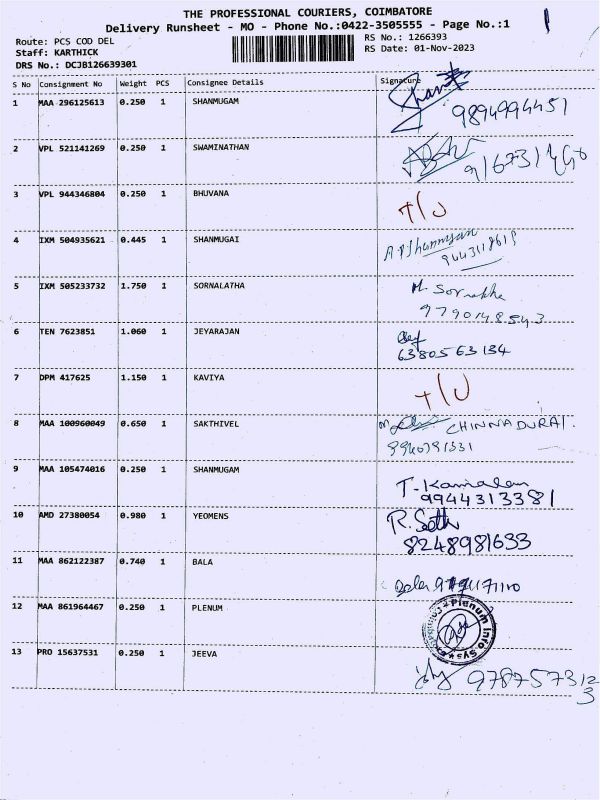 THE PROFESSIONAL COURIERS, COIMBATORE
Delivery Runsheet - MO - Phone No.:0422-3505555 - Page No.:1
Route: PCS COD DEL RS No.: 1266393
Staff: KARTHICK RS Date: 01-Nov-2023
DRS No.: DCJB126639301
S No Consignment No Weight PCS Consignee Details Signature
1 MAA 296125613 0.250 1 SHANMUGAM
9894994451
2 VPL 521141269 0.250 1 SWAMINATHAN
3 VPL 944346804 0.250 1 BHUVANA
T/U
4 IXM 504935621 0.445 1 SHANMUGAI
5 IXM 505233732 1.750 1 SORNALATHA
9790148543
6 TEN 7623851 1.060 1 JEYARAJAN
6380563134
7 DPM 417625 1.150 1 KAVIYA
T/U
8 MAA 100960049 0.650 1 SAKTHIVEL
CHINNADURAI.
9940781331
9 MAA 105474016 0.250 1 SHANMUGAM
9944313381
10 AMD 27380054 0.980 1 YEOMENS
R. Seth
8248981633
11 MAA 862122387 0.740 1 BALA
12 MAA 861964467 0.250 1 PLENUM
Plenum Info Sys
13 PRO 15637531 0.250 1 JEEVA
9787573123